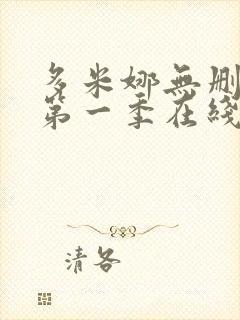 多米娜無刪
第一季在綫
清各